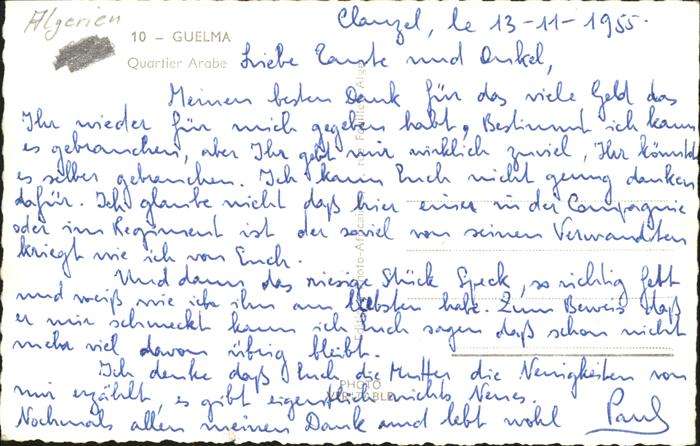 Algerien
Clauzel, le 13-11-1955.
10 – GUELMA
Quartier Arabe
Liebe Tante und Onkel,
Meinen besten Dank für das viele Geld das
Ihr wieder für mich gegeben habt, Bestimmt ich kann
es gebrauchen, aber Ihr gebt mir wirklich zuviel, Ihr könntet
es selber gebrauchen. Ich kann Euch nicht genug danken
dafür. Ich glaube nicht daß hier einer in der Compagnie
oder im Regiment ist der soviel von seinen Verwandten
kriegt wie ich von Euch.
Und dann das riesige Stück Speck, so richtig fett
und weiß wie ich ihn am liebsten habe. Zum Beweis daß
er mir schmeckt kann ich Euch sagen daß schon nicht
mehr viel davon übrig bleibt.
Ich denke daß Euch die Mutter die Neuigkeiten von
mir erzählt, es gibt eigentlich nichts Neues.
Nochmals allen meinen Dank und lebt wohl Paul
PHOTO
VERITABLE